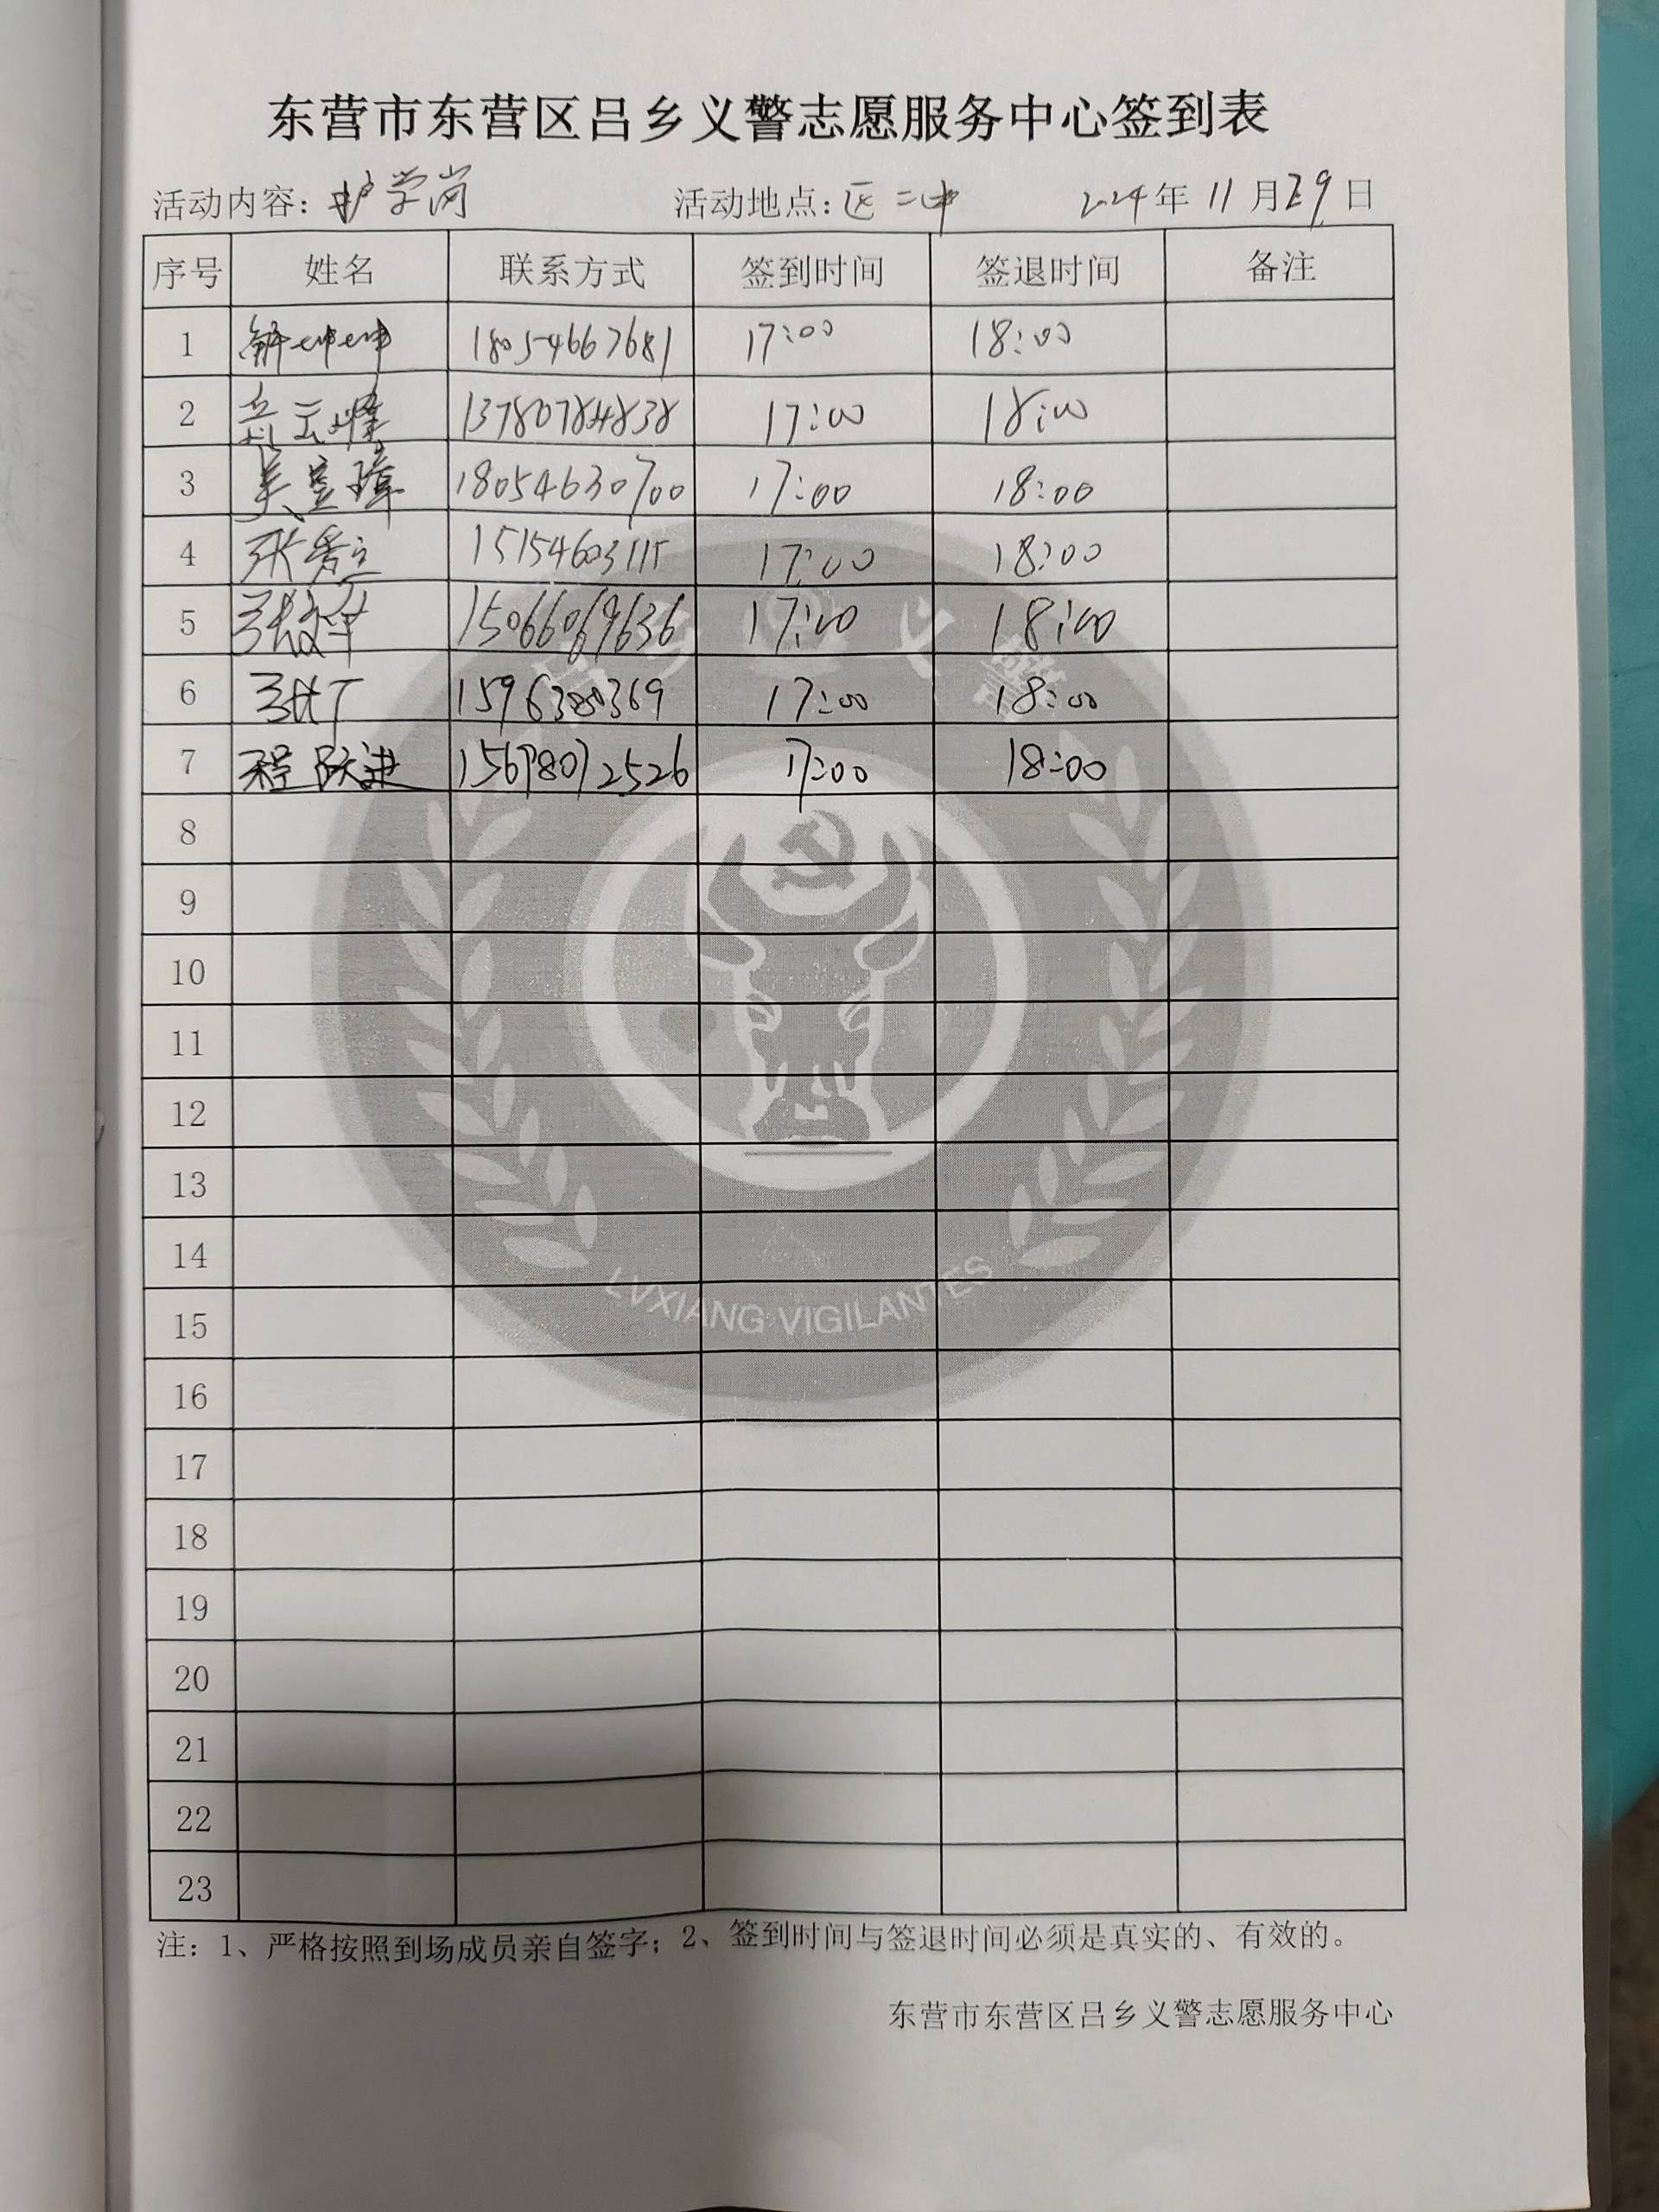 东营市东营区吕乡义警志愿服务中心签到表
活动内容：护学岗 活动地点：区二中 2024年11月29日
序号 姓名 联系方式 签到时间 签退时间 备注
1 解坤坤 18054667681 17:00 18:00
2 岳云峰 13780784838 17:00 18:00
3 吴宝璋 18054630700 17:00 18:00
4 张秀立 15154603115 17:00 18:00
5 15066069636 17:00 18:00
6 张丁 17:00 18:00
7 程跃进 17:00 18:00
8
9
10
11
12
13
14
15
16
17
18
19
20
21
22
23
吕乡义警
LVXIANG VIGILANTES
注：1、严格按照到场成员亲自签字；2、签到时间与签退时间必须是真实的、有效的。
东营市东营区吕乡义警志愿服务中心